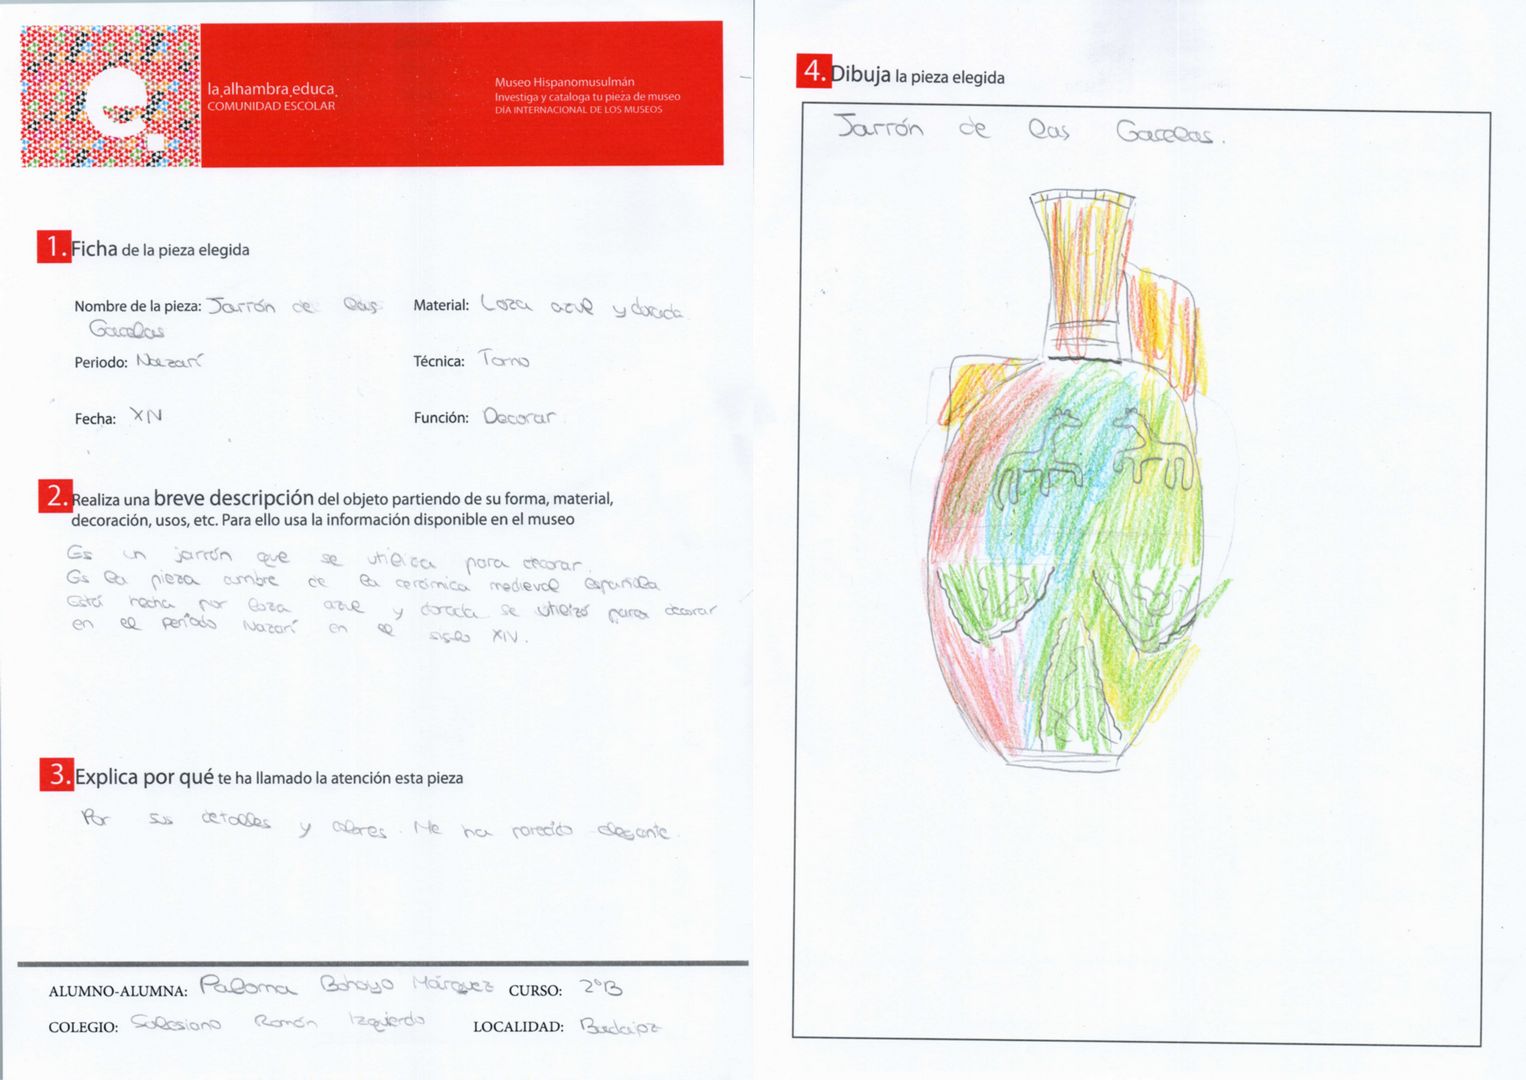 la alhambra educa
COMUNIDAD ESCOLAR
Museo Hispanomusulmán
Investiga y cataloga tu pieza de museo
DÍA INTERNACIONAL DE LOS MUSEOS
1. Ficha de la pieza elegida
Nombre de la pieza: Jarrón de las
Gacelas
Material: Loza azul y dorada
Periodo: Nazarí
Técnica: Torno
Fecha: XIV
Función: Decorar
2. Realiza una breve descripción del objeto partiendo de su forma, material,
decoración, usos, etc. Para ello usa la información disponible en el museo
Es un jarrón que se utiliza para decorar.
Es la pieza cumbre de la cerámica medieval española
Está hecha por loza azul y dorada se utilizó para decorar
en el período Nazarí en el siglo XIV.
3. Explica por qué te ha llamado la atención esta pieza
Por sus detalles y colores. Me ha parecido elegante.
ALUMNO-ALUMNA: Paloma Bohoyo Márquez CURSO: 2ºB
COLEGIO: Salesiano Ramón Izquierdo LOCALIDAD: Badajoz
4. Dibuja la pieza elegida
Jarrón de las Gacelas.